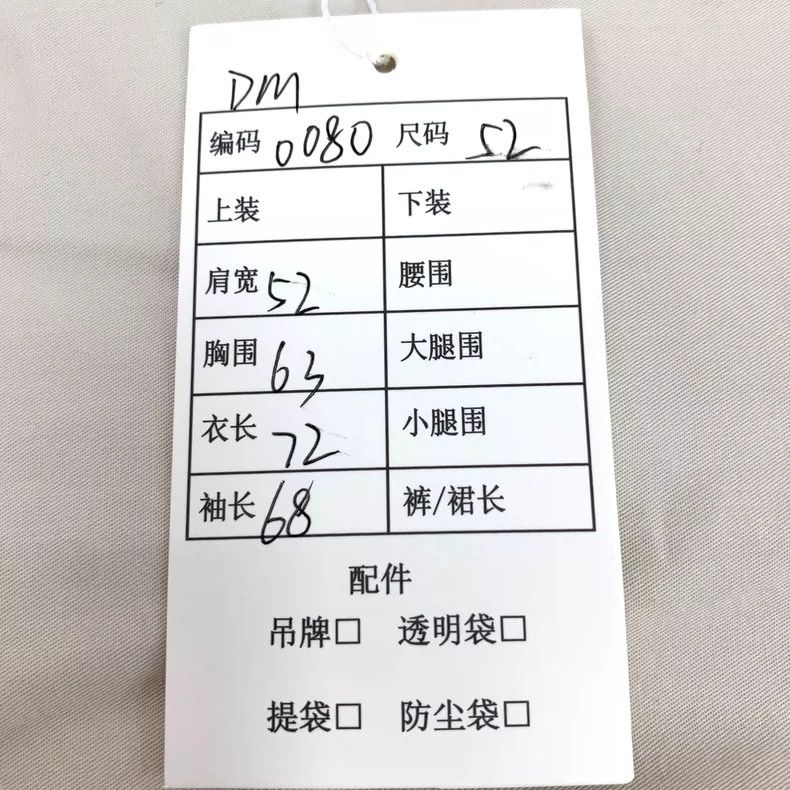 DM
编码 0080 尺码 52
上装 下装
肩宽 52 腰围
胸围 63 大腿围
衣长 72 小腿围
袖长 68 裤/裙长
配件
吊牌□ 透明袋□
提袋□ 防尘袋□